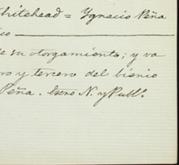 hitehead = Ygnacio Peña
co
e su otorgamiento; y va
ro y tercero del bienio
Peña. Esno N. y Pubº.